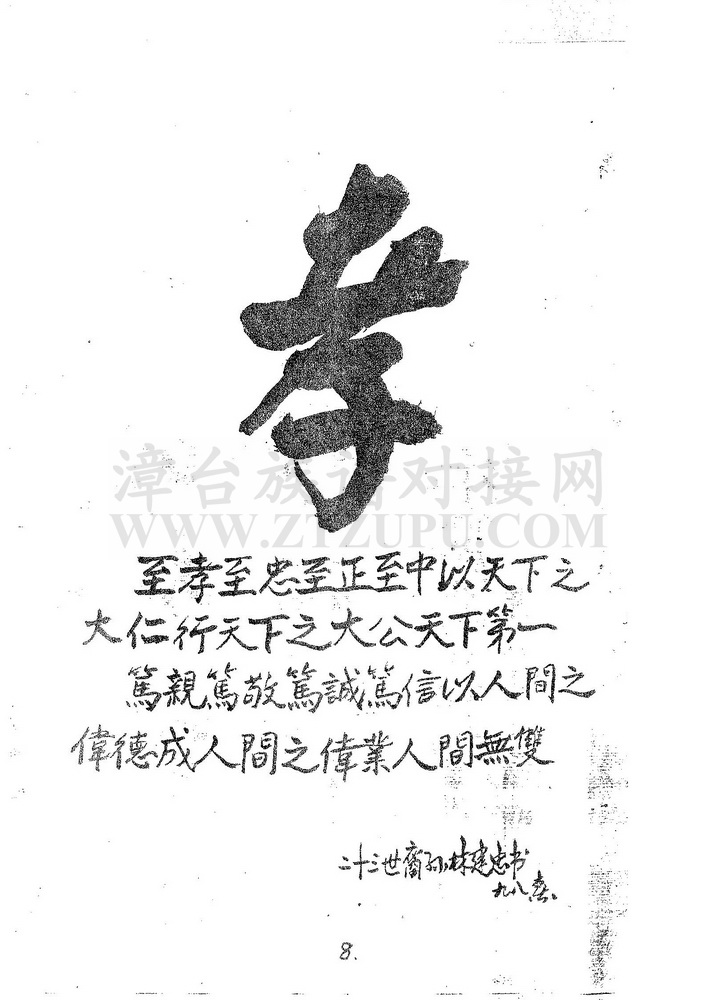 孝
漳台族谱对接网
WWW.ZTZUPU.COM
至孝至忠至正至中以天下之
大仁行天下之大公天下第一
篤親篤敬篤誠篤信以人間之
偉德成人間之偉業人間無雙
二十三世裔孙林建忠书
九八春
8.